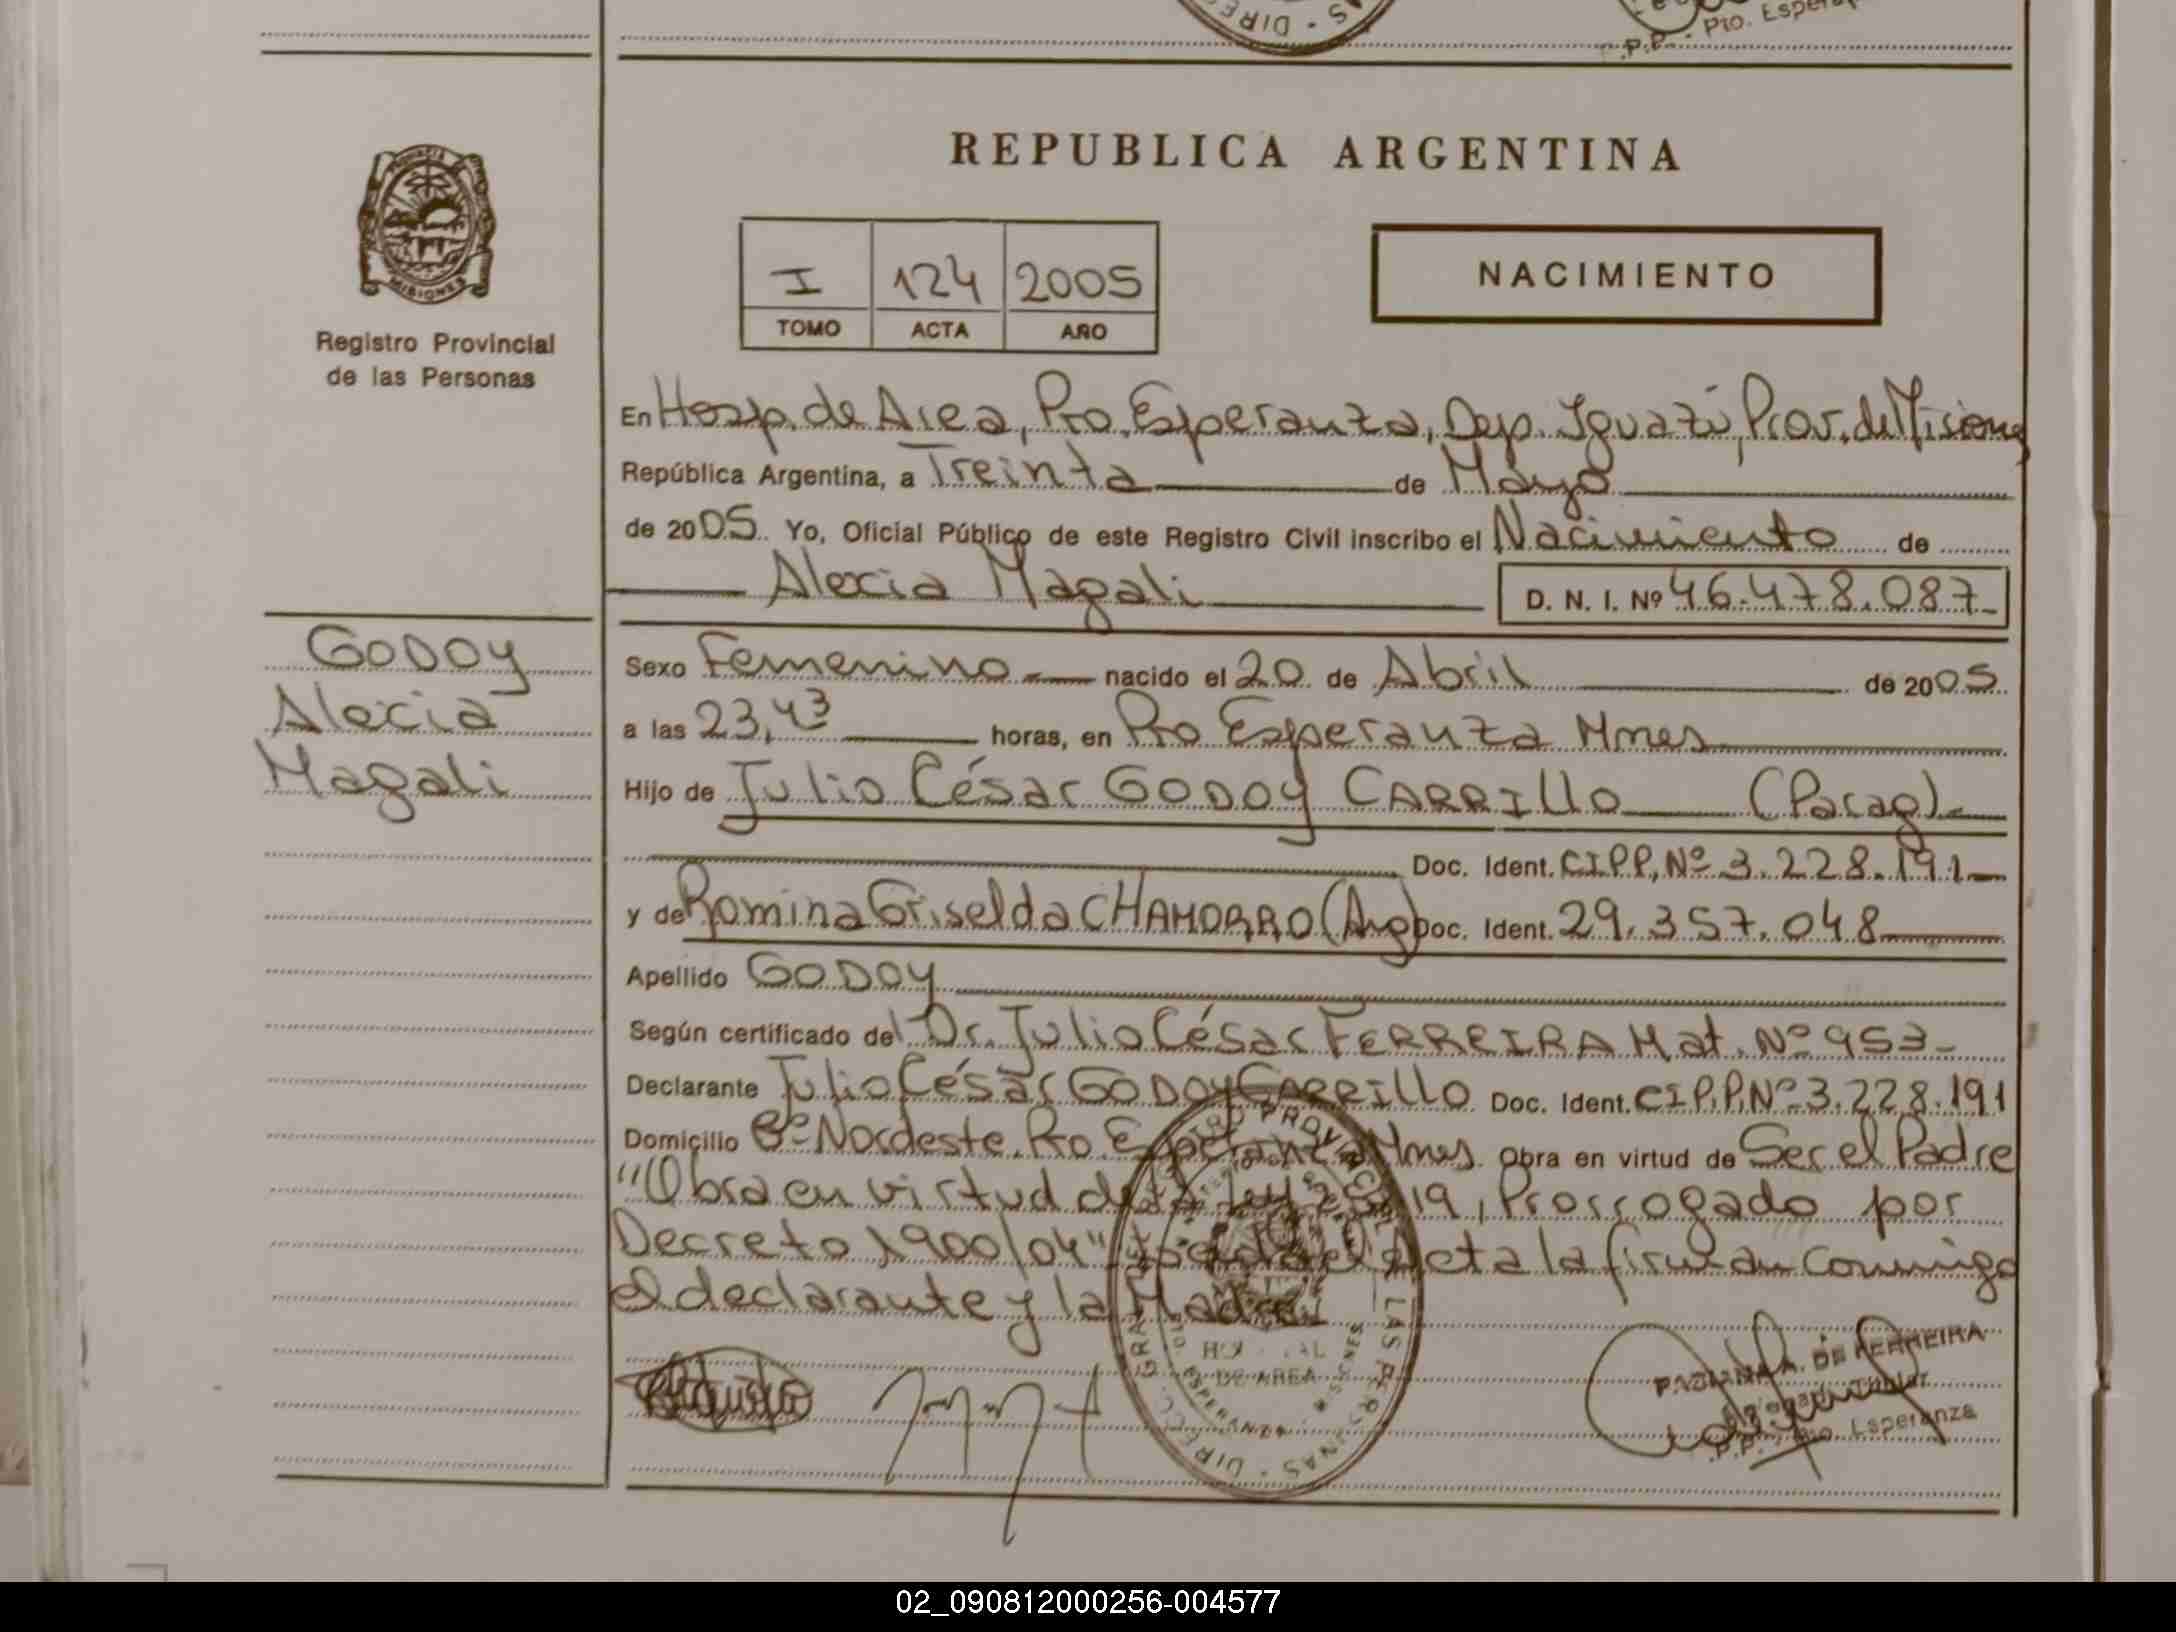 P.P. - Pto. Esperanza
REPUBLICA ARGENTINA
PROVINCIA
MISIONES
Registro Provincial
de las Personas
I 124 2005
TOMO ACTA AÑO
NACIMIENTO
En Hosp. de Area, Pto. Esperanza, Dep. Iguazú, Prov. de Misiones
República Argentina, a Treinta de Mayo
de 2005. Yo, Oficial Público de este Registro Civil inscribo el Nacimiento de
Alexia Magali D. N. I. Nº 46.478.087
GODOY
Alexia
Magali
Sexo Femenino nacido el 20 de Abril de 2005
a las 23,43 horas, en Pto Esperanza Mnes
Hijo de Julio César GODOY CARRILLO (Parag).
Doc. Ident. C.I.P.P, Nº 3.228.191
y de Romina Griselda CHAMORRO (Arg) Doc. Ident. 29.357.048
Apellido GODOY
Según certificado del Dr. Julio César FERREIRA Mat. Nº 953-
Declarante Julio César GODOY CARRILLO Doc. Ident. C.I.P.P. Nº 3.228.191
Domicilio Bº Nordeste. Pto. Esperanza Mnes. Obra en virtud de Ser el Padre
"Obra en virtud de la Ley 25819, Prorrogado por
Decreto 1900/04" Leída el Acta la firman conmigo
el declarante y la Madre
HOSPITAL
DE AREA
PTO. ESPERANZA - MISIONES
A. DE FERREIRA
Delegada Titular
P.P. - Pto. Esperanza
02_090812000256-004577